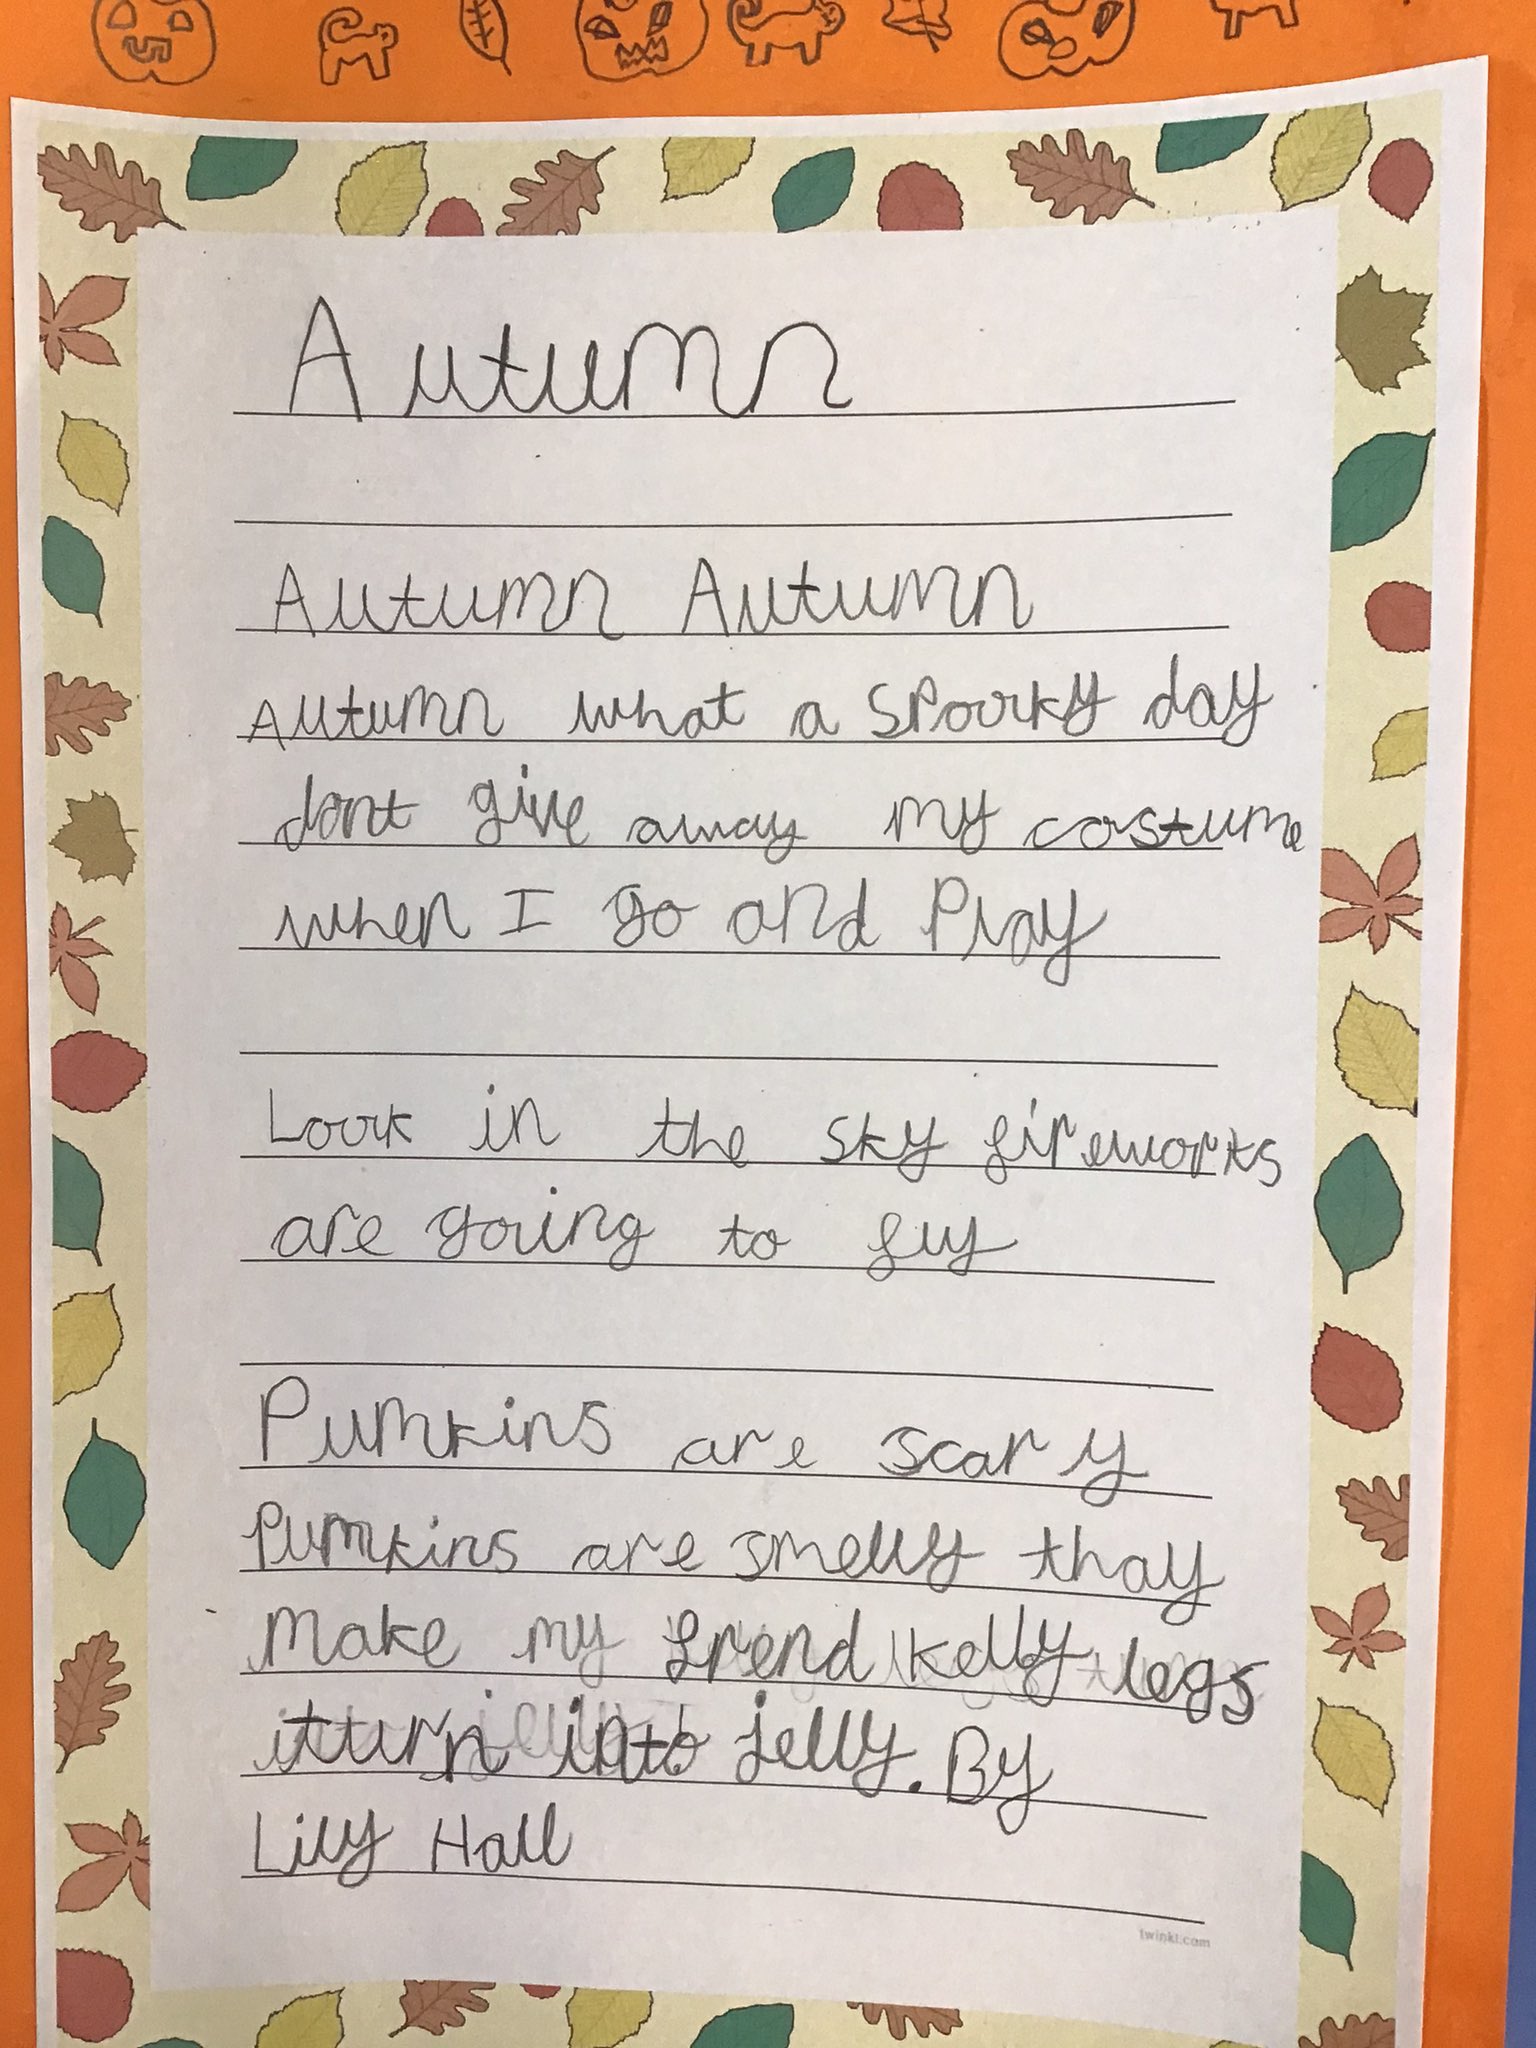 Autumn
Autumn Autumn
Autumn what a spooky day
dont give away my costume
when I go and Play
Look in the sky fireworks
are going to fly
Pumkins are scary
Pumkins are smelly thay
make my frend kelly legs
itturn into jelly. By
Lily Hall
twinkl.com